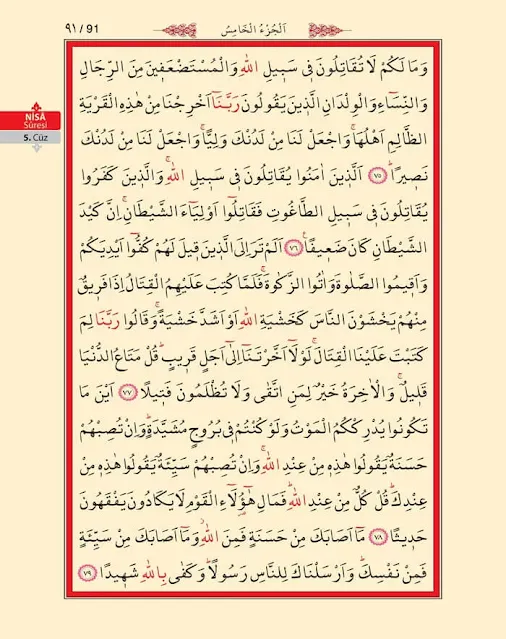 ٩١ / 91
اَلْجُزْءُ الْخَامِسُ
NİSÂ
Sûresi
5. Cüz
وَمَا لَكُمْ لَا تُقَاتِلُونَ ف۪ي سَب۪يلِ اللّٰهِ وَالْمُسْتَضْعَف۪ينَ مِنَ الرِّجَالِ
وَالنِّسَٓاءِ وَالْوِلْدَانِ الَّذ۪ينَ يَقُولُونَ رَبَّنَٓا اَخْرِجْنَا مِنْ هٰذِهِ الْقَرْيَةِ
الظَّالِمِ اَهْلُهَاۚ وَاجْعَلْ لَنَا مِنْ لَدُنْكَ وَلِيًّاۚ وَاجْعَلْ لَنَا مِنْ لَدُنْكَ
نَص۪يرًاۜ ﴿٧٥﴾ اَلَّذ۪ينَ اٰمَنُوا يُقَاتِلُونَ ف۪ي سَب۪يلِ اللّٰهِۚ وَالَّذ۪ينَ كَفَرُوا
يُقَاتِلُونَ ف۪ي سَب۪يلِ الطَّاغُوتِ فَقَاتِلُٓوا اَوْلِيَٓاءَ الشَّيْطَانِۚ اِنَّ كَيْدَ
الشَّيْطَانِ كَانَ ضَع۪يفًا۟ ﴿٧٦﴾ اَلَمْ تَرَ اِلَى الَّذ۪ينَ ق۪يلَ لَهُمْ كُفُّٓوا اَيْدِيَكُمْ
وَاَق۪يمُوا الصَّلٰوةَ وَاٰتُوا الزَّكٰوةَۚ فَلَمَّا كُتِبَ عَلَيْهِمُ الْقِتَالُ اِذَا فَر۪يقٌ
مِنْهُمْ يَخْشَوْنَ النَّاسَ كَخَشْيَةِ اللّٰهِ اَوْ اَشَدَّ خَشْيَةًۚ وَقَالُوا رَبَّنَا لِمَ
كَتَبْتَ عَلَيْنَا الْقِتَالَۚ لَوْلَٓا اَخَّرْتَنَٓا اِلٰٓى اَجَلٍ قَر۪يبٍۜ قُلْ مَتَاعُ الدُّنْيَا
قَل۪يلٌۚ وَالْاٰخِرَةُ خَيْرٌ لِمَنِ اتَّقٰى وَلَا تُظْلَمُونَ فَت۪يلًا ﴿٧٧﴾ اَيْنَ مَا
تَكُونُوا يُدْرِكْكُمُ الْمَوْتُ وَلَوْ كُنْتُمْ ف۪ي بُرُوجٍ مُشَيَّدَةٍۜ وَاِنْ تُصِبْهُمْ
حَسَنَةٌ يَقُولُوا هٰذِه۪ مِنْ عِنْدِ اللّٰهِۚ وَاِنْ تُصِبْهُمْ سَيِّئَةٌ يَقُولُوا هٰذِه۪ مِنْ
عِنْدِكَۜ قُلْ كُلٌّ مِنْ عِنْدِ اللّٰهِۜ فَمَالِ هٰٓؤُ۬لَٓاءِ الْقَوْمِ لَا يَكَادُونَ يَفْقَهُونَ
حَد۪يثًا ﴿٧٨﴾ مَٓا اَصَابَكَ مِنْ حَسَنَةٍ فَمِنَ اللّٰهِۘ وَمَٓا اَصَابَكَ مِنْ سَيِّئَةٍ
فَمِنْ نَفْسِكَۜ وَاَرْسَلْنَاكَ لِلنَّاسِ رَسُولًاۜ وَكَفٰى بِاللّٰهِ شَه۪يدًا ﴿٧٩﴾